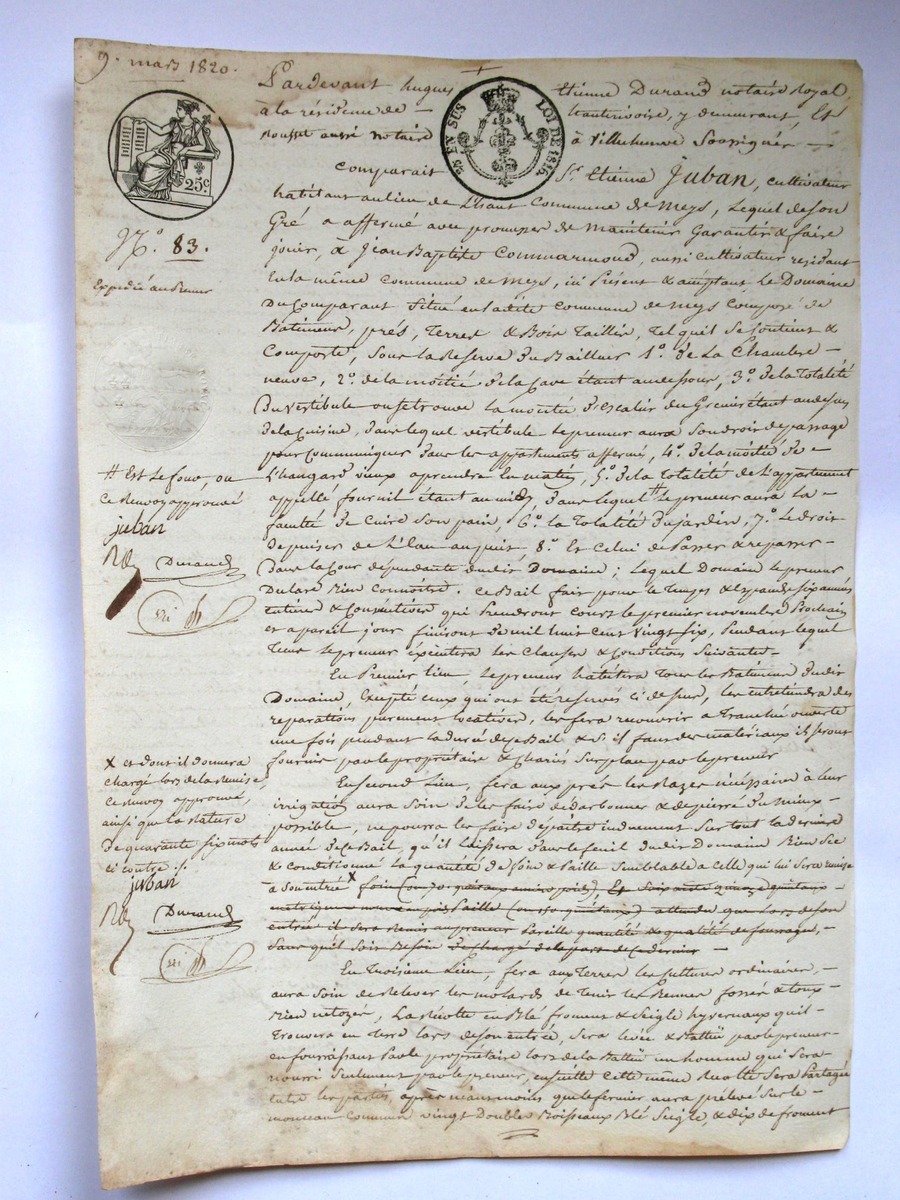 9. mars 1820.
Pardevant hugues Etienne Durand notaire Royal
à la résidence de hauterivoire, y demeurant, Et
Rousset aussi notaire à Villechenève Soussignés
25 EN SUS LOI DE 1816
25c
comparait Sr. Etienne Juban, cultivateur
habitant au lieu de Lhaut Commune de Meys, Lequel de son
Gré a affermé avec promesse de Maintenir Garantir & faire
N.° 83.
jouir, à Jean Baptiste Commarmond, aussi cultivateur residant
Expédié au Preneur
En la même commune de Meys, ici Présent & acceptant, le Domaine
Du Comparant Situé en ladite commune de Meys Composé de
Batiments, prés, Terres & Bois Taillis, Tel quil Se Contient &
Comporte, Sous la Reserve du Bailleur 1.° de La Chambre
neuve, 2.° de la moitié de la Cave étant au dessous, 3.° de la Totalité
Du Vestibule ou se trouve la montée d'escalier du Grenier étant au dessus
de la Cuisine, dans lequel vestibule le preneur aura Son droit de passage
pour Communiquer dans les appartements affermé, 4.° de la moitié de
L'hangard vieux a prendre En matin, 5.° de la Totalité de L'appartement
# Est le four, ou
ce Renvoy approuvé
appelle fournil étant au midy dans lequel # le preneur aura La
juban
faculté de Cuire Son pain, 6.° la Totalité du jardin, 7.° Le droit
De puiser de L'Eau au puit, 8.° Et Celui de Passer & repasser
Durand
Dans la Cour dépendante dudit Domaine; Lequel Domaine le preneur
Déclare Bien Connoitre. Ce Bail fait pour le Temps & Espace de Six années
Entières & Consécutives qui Prendront Cours le premier novembre Prochain
et a pareil jour finiront de mil huit Cent Vingt Six, Pendant lequel
Tems le preneur éxécutera les Clauses & Conditions Suivantes
En Premier lieu, le preneur habitera Tous les Batiments dudit
Domaine, Excepté ceux qui ont été reservés ci dessus, les entretiendra des
reparations purement locatives, les fera recouvrir a Tranché ouverte
une fois pendant la durée de ce Bail & S'il faut des matériaux ils seront
fournis par le propriétaire & Chariés Sur place par le preneur
X et dont il donnera
chargé lors de la remise,
ce renvoy approuvé,
ainsi que la Rature
De quarante Six mots
ci contre ./.
juban
Durand
En Second Lieu, fera aux prés les Razes nécéssaire à leur
irrigation aura Soin de les faire dedarbonner & depierré du mieux
possible, ne pourra les faire dépaitre indument Sur tout la dernière
année de ce Bail, qu'il laissera dans le feuil dudit Domaine Bien Sec
& conditionné la quantité de foin & Paille Semblable a celle qui lui Sera remise
à Son entré X foin (ou 70 quintaux ancien poids) Et Soixante quinze quintaux
metrique Paille (ou 150 quintaux) attendu que Lors de Son
entrée il Sera Remis au preneur Pareille quantité & qualité de fourrage,
Sans quil Soit Besoin de chargé de la part de Ce dernier
En Troisieme Lieu, fera aux Terres les Cultures ordinaires,
aura Soin de Relever les molards de Tenir les Bennes fossés & tous
Bien netoyés, La Récolte en Blé froment & Seigle hyvernaux quil
Trouvera en Terre lors de Son entrée, Sera levée & Battue par le preneur
en fournissant Par le propriétaire lors de la Battue un homme qui Sera
nourri Seulement par le preneur, ensuite Cette même Recolte Sera Partagée
Entre les parties, après néanmoins que le fermier aura prélevé Sur le
monceau Commun vingt Doubles Boisseaux Blé Seigle, & dix de froment